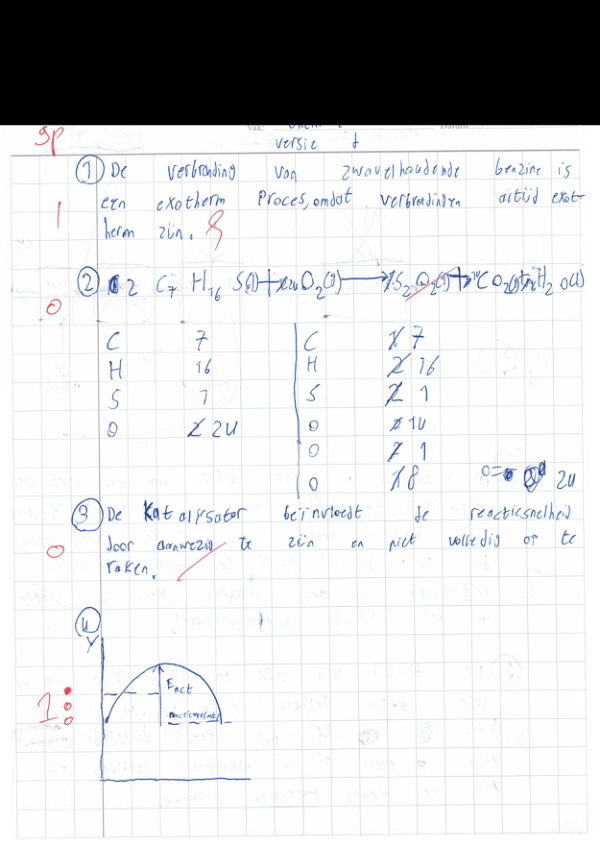 9p
versie 1
① De verbranding van zwavelhoudende benzine is
1 een exotherm Proces, omdat verbrandingen altijd exot-
herm zijn.
② 2 C7 H16 S(l) + O2(g) → S2 O2(g) + CO2(g) H2 O(l)
0
C 7 C 7
H 16 H 16
S 1 S 1
O 24 O 14
O 1
O 8 O= 24
③ De Katalysator beïnvloedt de reactiesnelheid
0 door aanwezig te zijn en niet volledig op te
raken.
④
Y
Eact
1